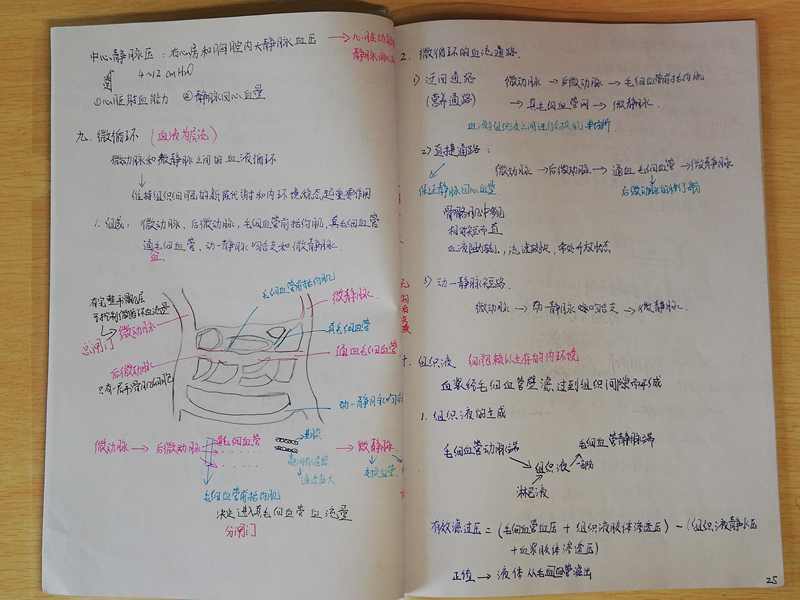 中心静脉压：右心房和胸腔内大静脉血压 → 心脏动
静脉回心
4~12 cmH₂O
①心脏射血能力 ②静脉回心血量
九. 微循环（血液为层流）
微动脉和微静脉之间的血液循环
维持组织细胞的新陈代谢和内环境稳态起重要作用
1. 组成：微动脉、后微动脉，毛细血管前括约肌，真毛细血管
通毛细血管，动-静脉吻合支和微静脉.
血
有完整平滑肌层
可控制微循环血流量
总闸门
微动脉
后微动脉
只有一层平滑肌细胞
毛细血管前括约肌
微静脉
真毛细血管
通血毛细血管
动-静脉吻合
微动脉 → 后微动脉 → 真毛细血管 → 微静脉
毛细血管前括约肌
决定进入真毛细血管血流量
分闸门
2. 微循环的血流通路.
1) 迂回通路 微动脉 → 后微动脉 → 毛细血管前括约肌
(营养通路) → 真毛细血管网 → 微静脉.
血液与组织液之间进行交换的场所.
2) 直捷通路：
微动脉 → 后微动脉 → 通血毛细血管 → 微静脉
保证静脉回心血量
后微动脉的移行部
骨骼肌中多见
相对短而直
血液阻力较小，流速较快，常处开放状态
3) 动-静脉短路.
微动脉 → 动-静脉吻合支 → 微静脉.
十. 组织液 细胞赖以生存的内环境
血浆经毛细血管壁滤过到组织间隙而形成
1. 组织液的生成
毛细血管动脉端
毛细血管静脉端
组织液
淋巴液
有效滤过压 = (毛细血管血压 + 组织液胶体渗透压) - (组织液静水压
+ 血浆胶体渗透压)
正值 → 液体从毛细血管滤出
25